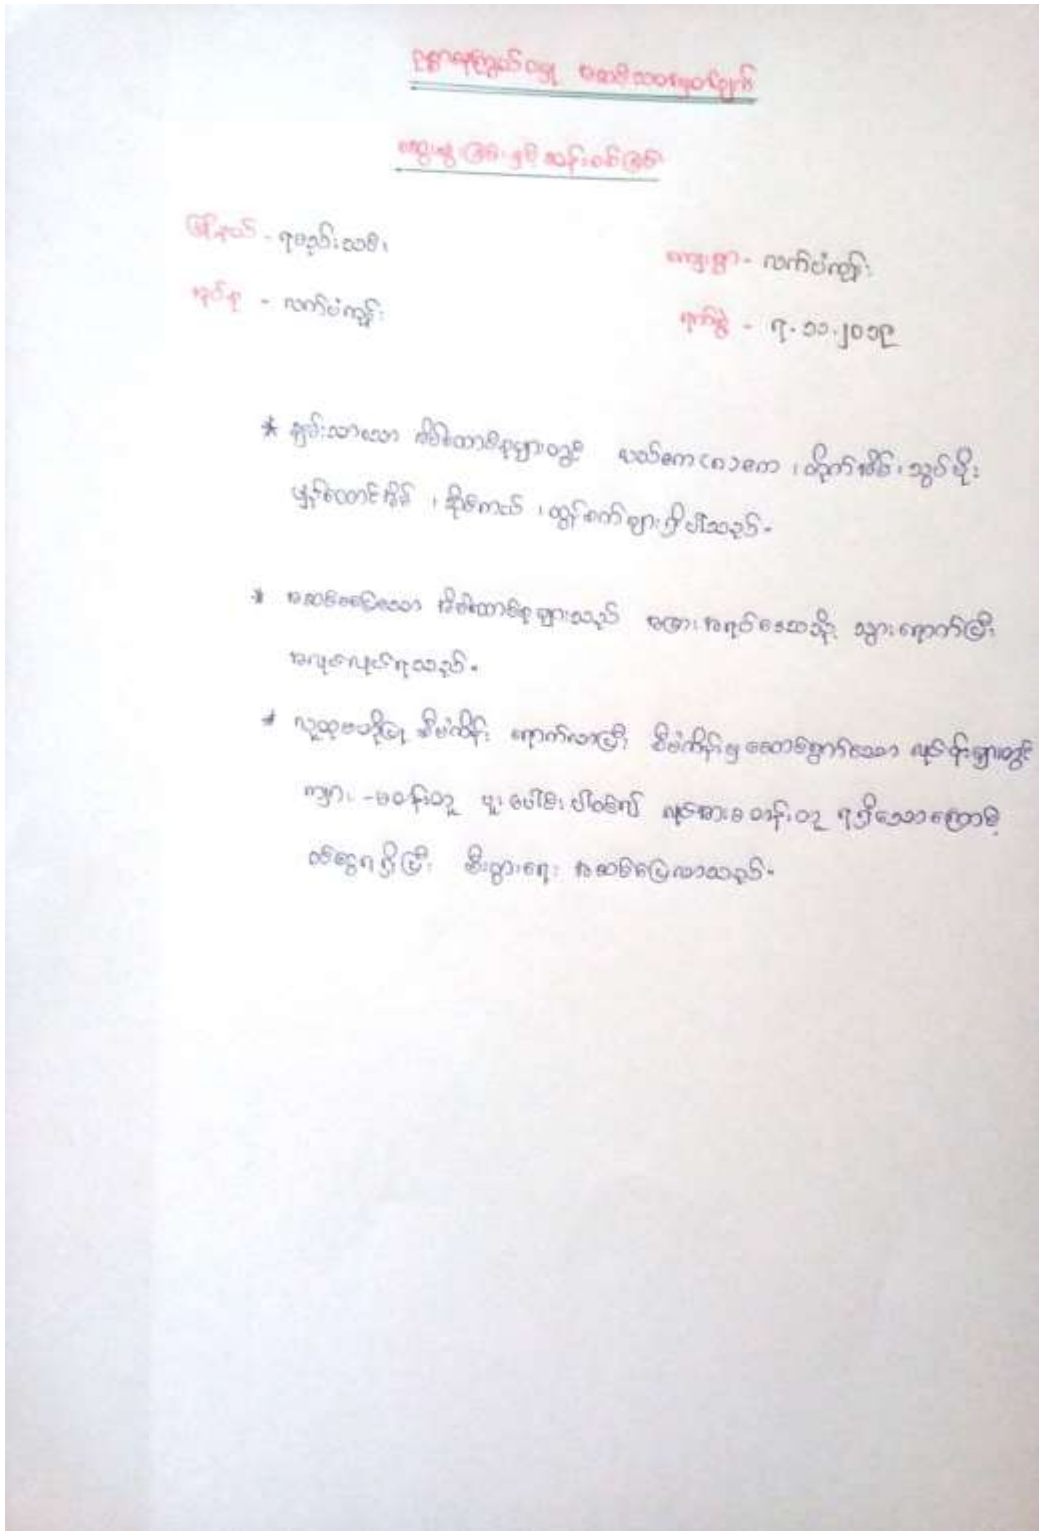 ဆွေးနွေးခြင်းနှင့် ဆန်းစစ်ခြင်း
မြို့နယ် - ရမည်းသင်း
ကျေးရွာ - လက်ပံကျွန်း
အုပ်စု - လက်ပံကျွန်း
ရက်စွဲ - ၇.၁၁.၂၀၁၉
* ချမ်းသာသော အိမ်ထောင်စုများတွင် လယ်ဧက (၈) ဧက ၊ တိုက်အိမ် ၊ သွပ်မိုး
ပျဉ်ထောင်အိမ် ၊ ဆိုင်ကယ် ၊ ထွန်စက်များ ရှိပါသည်။
* အဆင်မပြေသော အိမ်ထောင်စုများသည် အခြားအရပ်ဒေသသို့ သွားရောက်ပြီး
အလုပ်လုပ်ရသည်။
* လူထုဗဟိုပြု စီမံကိန်း ရောက်လာပြီး စီမံကိန်းမှ ဆောင်ရွက်သော လုပ်ငန်းများတွင်
ကျား - မ တန်းတူ ပူးပေါင်းပါဝင်၍ လုပ်အားခ တန်းတူ ရရှိသောကြောင့်
ဝင်ငွေရရှိပြီး စီးပွားရေး အဆင်ပြေလာသည်။